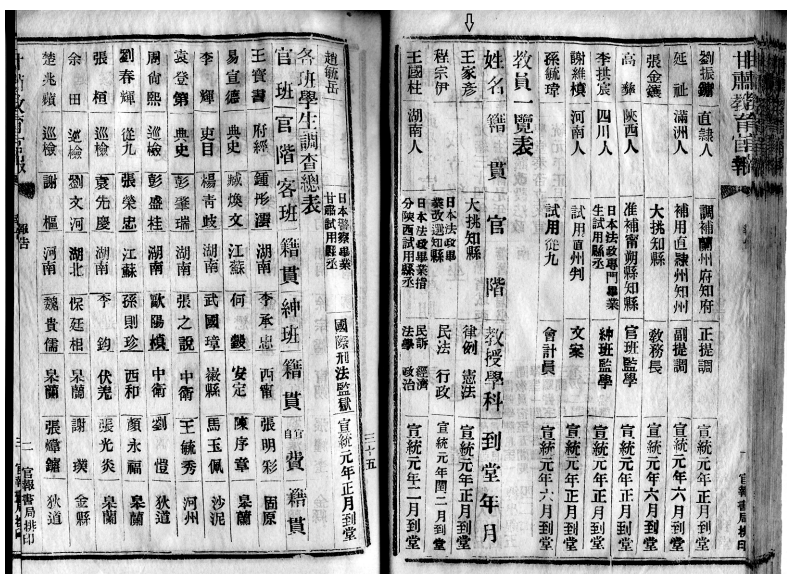 甘肅教育官報
劉振鏞 直隸人 調補蘭州府知府 正提調 宣統元年正月到堂
延祉 滿洲人 補用直隸州知州 副提調 宣統元年六月到堂
張金鑑 大挑知縣 教務長 宣統元年六月到堂
高彝 陝西人 准補甯朔縣知縣 官班監學 宣統元年正月到堂
李拱宸 四川人 日本法政專門畢業生試用縣丞 紳班監學 宣統元年正月到堂
謝維楨 河南人 試用直州判 文案 宣統元年正月到堂
孫毓瑋 試用從九 會計員 宣統元年六月到堂
教員一覽表
姓名 籍貫 官階 教授學科 到堂年月
王家彥 大挑知縣 律例 憲法 宣統元年正月到堂
程宗伊 日本法政畢業改選知縣 民法 行政 宣統元年閏二月到堂
王國柱 湖南人 日本法政畢業指分陝西試用縣丞 民訴 經濟 法學 政治 宣統元年二月到堂
一 官報書局排印
三十五
趙毓岳 日本警察畢業甘肅試用縣丞 國際刑法監獄 宣統元年正月到堂
各班學生調查總表
官班 官階 客班 籍貫 紳班 籍貫 官自費 籍貫
王寶書 府經 鍾彤澐 湖南 李承忠 西甯 張明彩 固原
易宣德 典史 臧煥文 江蘇 何毅 安定 陳序章 皋蘭
李輝 吏目 楊青岐 湖南 武國璋 徽縣 馬玉佩 沙泥
袁登第 典史 彭肇瑞 湖南 張之說 中衛 王毓秀 河州
周尙熙 巡檢 彭盛桂 湖南 歐陽模 中衛 劉愷 狄道
劉春輝 從九 張榮忠 江蘇 孫則珍 西和 顏永福 皋蘭
張桓 巡檢 袁先慶 湖南 李鈞 伏羌 張光炎 皋蘭
余田 巡檢 劉文河 湖北 保廷相 皋蘭 謝璞 金縣
楚兆蘋 巡檢 謝樞 河南 魏貴儒 皋蘭 張煒鏞 狄道
教育官報
報告
二 官報書局排印